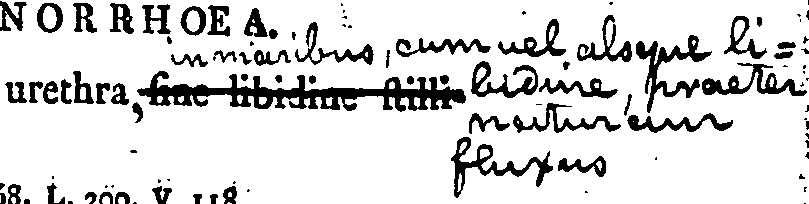 NORRHOEA.
in maribus, cum vel absque li=
urethra, sine libidine stilli- bidine, praeter
naturam
fluxus
68. L. 200. V. 118.